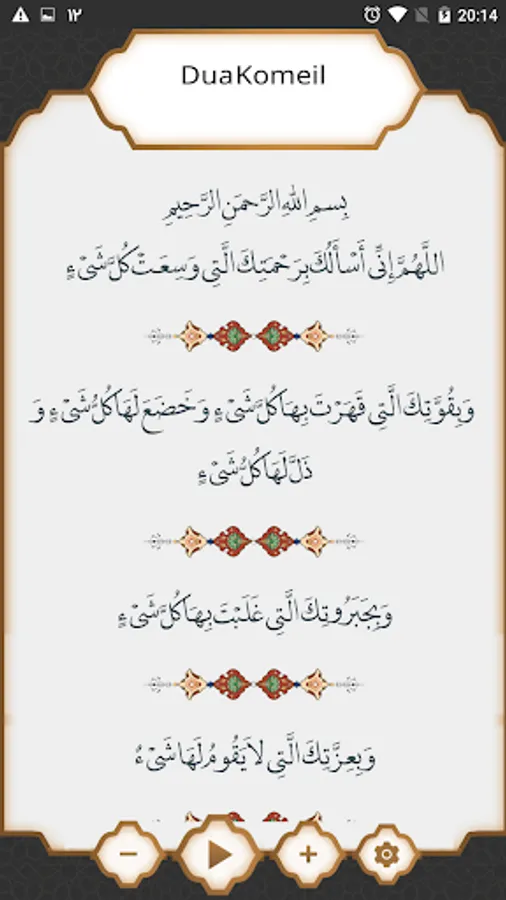 ١٢ 20:14
DuaKomeil
بِسمِ اللهِ الرَّحمَنِ الرَّحِیمِ
اللَّهُمَّ إِنِّی أَسْأَلُكَ بِرَحْمَتِكَ الَّتِی وَسِعَتْ كُلَّ شَیْءٍ
وَبِقُوَّتِكَ الَّتِی قَهَرْتَ بِهَا كُلَّ شَیْءٍ وَ خَضَعَ لَهَا كُلُّ شَیْءٍ وَ
ذَلَّ لَهَا كُلُّ شَیْءٍ
وَ بِجَبَرُوتِكَ الَّتِی غَلَبْتَ بِهَا كُلَّ شَیْءٍ
وَ بِعِزَّتِكَ الَّتِی لاَ یَقُومُ لَهَا شَیْءٌ